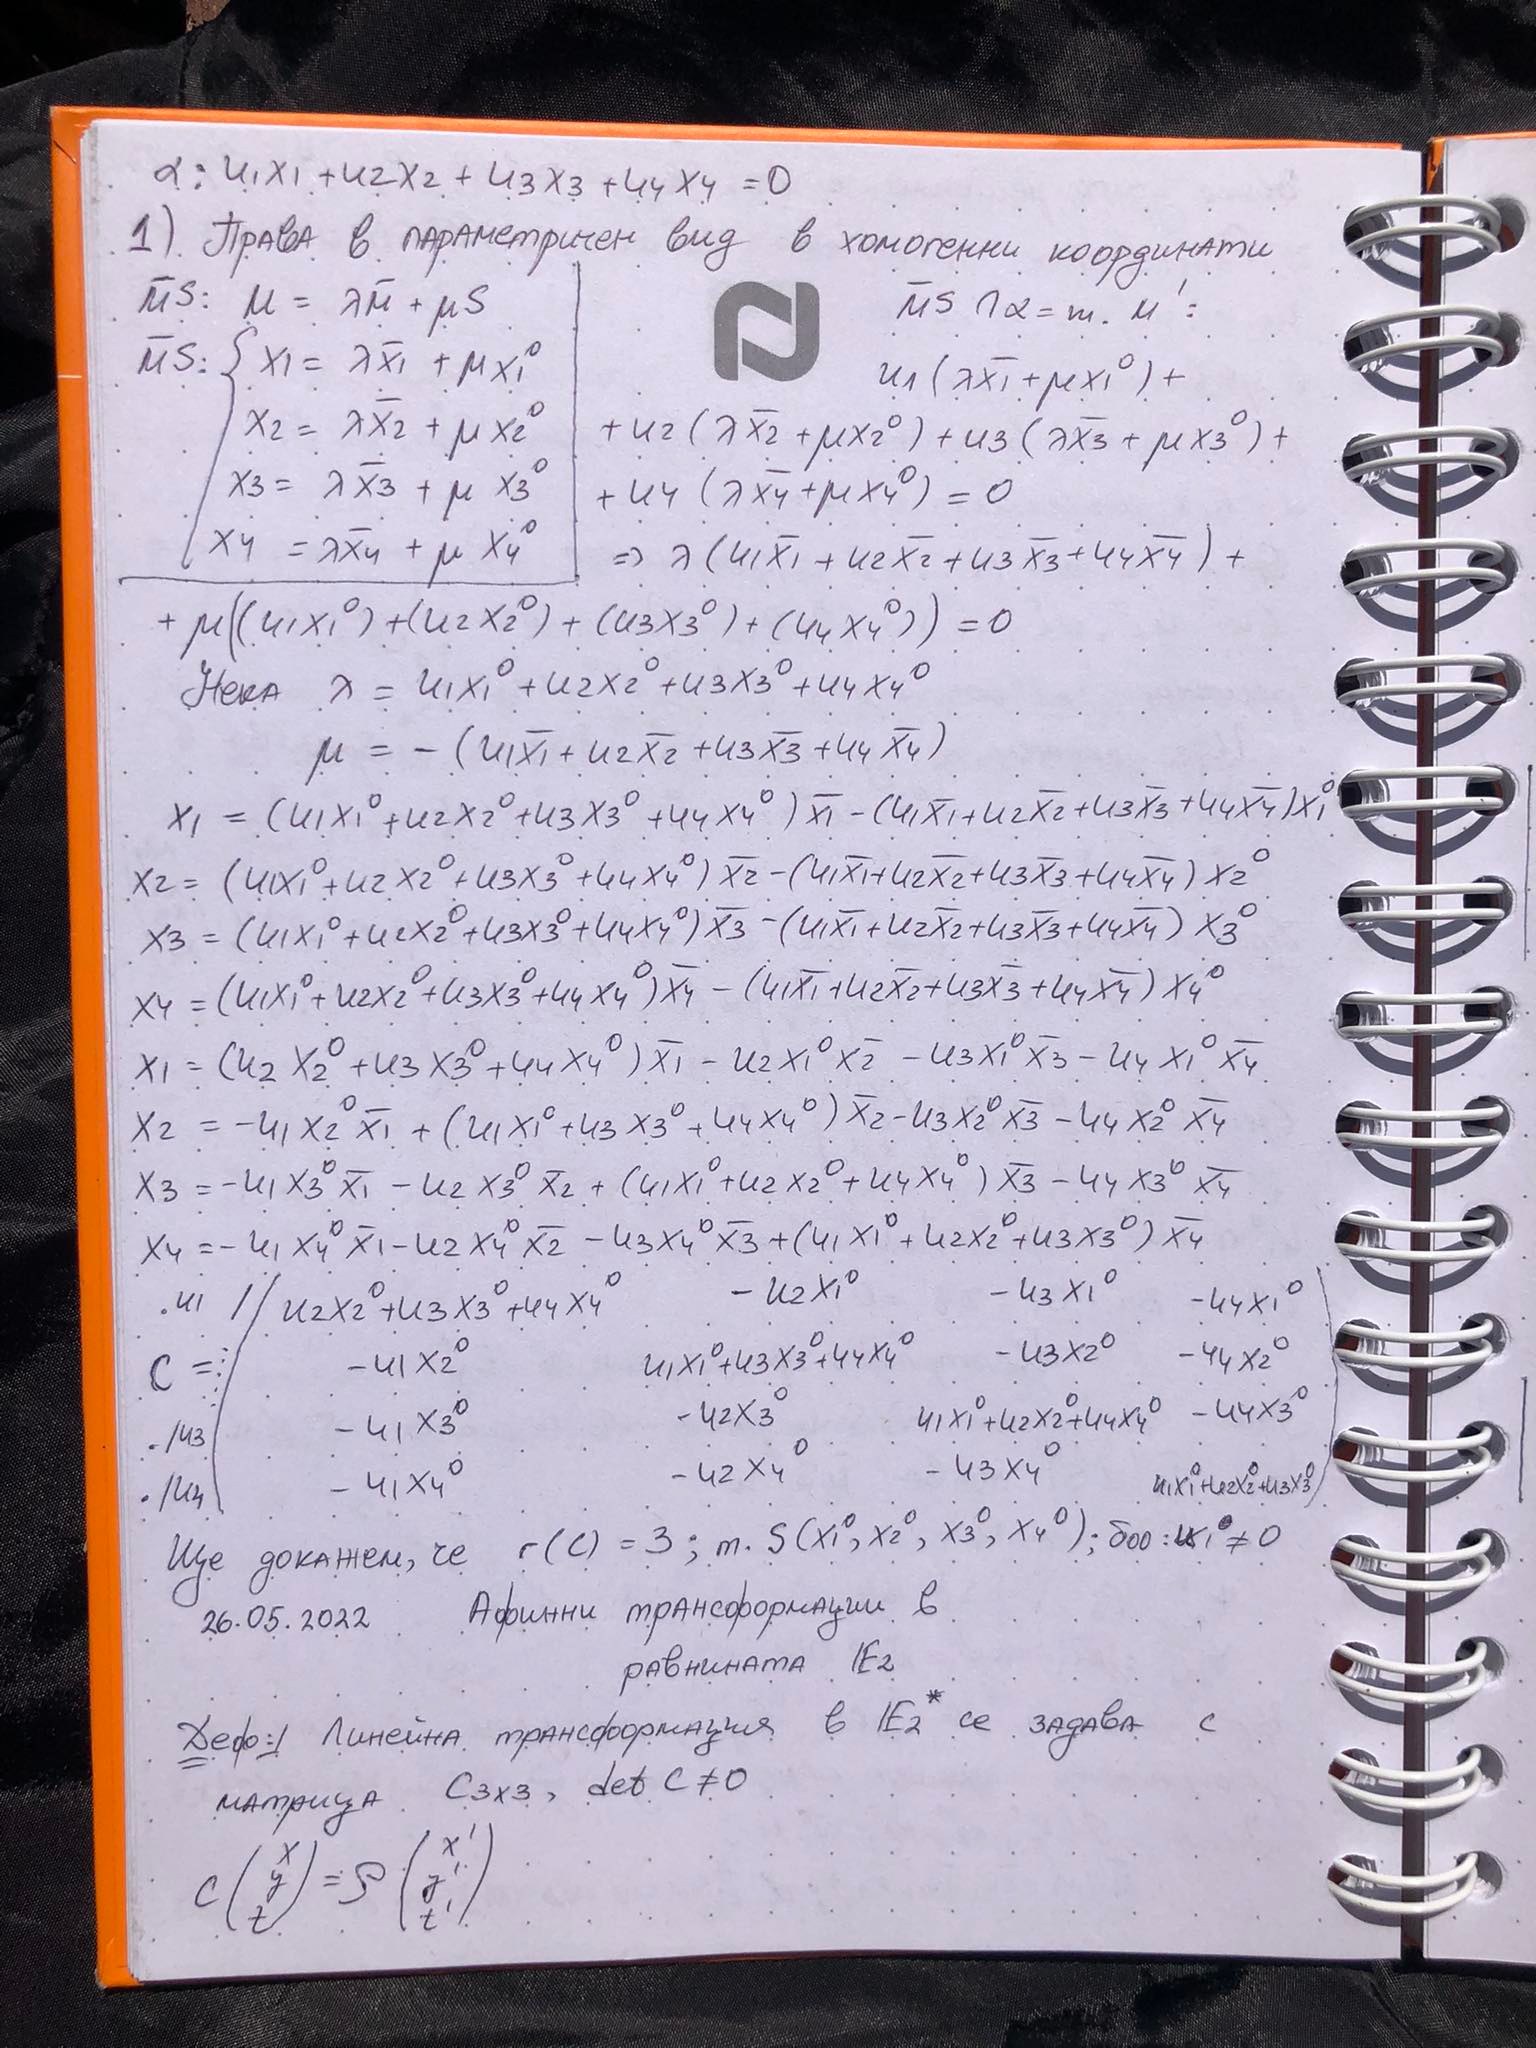 α: u1x1 + u2x2 + u3x3 + u4x4 = 0
1) Права в параметричен вид в хомогенни координати
M̄S: M = λM̄ + μS
M̄S: { x1 = λx̄1 + μx1⁰
x2 = λx̄2 + μx2⁰
x3 = λx̄3 + μx3⁰
x4 = λx̄4 + μx4⁰
M̄S ∩ α = т. M':
u1(λx̄1 + μx1⁰) +
+ u2(λx̄2 + μx2⁰) + u3(λx̄3 + μx3⁰) +
+ u4(λx̄4 + μx4⁰) = 0
=> λ(u1x̄1 + u2x̄2 + u3x̄3 + u4x̄4) +
+ μ((u1x1⁰) + (u2x2⁰) + (u3x3⁰) + (u4x4⁰)) = 0
Нека λ = u1x1⁰ + u2x2⁰ + u3x3⁰ + u4x4⁰
μ = -(u1x̄1 + u2x̄2 + u3x̄3 + u4x̄4)
x1 = (u1x1⁰ + u2x2⁰ + u3x3⁰ + u4x4⁰)x̄1 - (u1x̄1 + u2x̄2 + u3x̄3 + u4x̄4)x1⁰
x2 = (u1x1⁰ + u2x2⁰ + u3x3⁰ + u4x4⁰)x̄2 - (u1x̄1 + u2x̄2 + u3x̄3 + u4x̄4)x2⁰
x3 = (u1x1⁰ + u2x2⁰ + u3x3⁰ + u4x4⁰)x̄3 - (u1x̄1 + u2x̄2 + u3x̄3 + u4x̄4)x3⁰
x4 = (u1x1⁰ + u2x2⁰ + u3x3⁰ + u4x4⁰)x̄4 - (u1x̄1 + u2x̄2 + u3x̄3 + u4x̄4)x4⁰
x1 = (u2x2⁰ + u3x3⁰ + u4x4⁰)x̄1 - u2x1⁰x̄2 - u3x1⁰x̄3 - u4x1⁰x̄4
x2 = -u1x2⁰x̄1 + (u1x1⁰ + u3x3⁰ + u4x4⁰)x̄2 - u3x2⁰x̄3 - u4x2⁰x̄4
x3 = -u1x3⁰x̄1 - u2x3⁰x̄2 + (u1x1⁰ + u2x2⁰ + u4x4⁰)x̄3 - u4x3⁰x̄4
x4 = -u1x4⁰x̄1 - u2x4⁰x̄2 - u3x4⁰x̄3 + (u1x1⁰ + u2x2⁰ + u3x3⁰)x̄4
.u1 / ( u2x2⁰+u3x3⁰+u4x4⁰ -u2x1⁰ -u3x1⁰ -u4x1⁰ )
C = -u1x2⁰ u1x1⁰+u3x3⁰+u4x4⁰ -u3x2⁰ -u4x2⁰
./u3 -u1x3⁰ -u2x3⁰ u1x1⁰+u2x2⁰+u4x4⁰ -u4x3⁰
./u4 -u1x4⁰ -u2x4⁰ -u3x4⁰ u1x1⁰+u2x2⁰+u3x3⁰
Ще докажем, че r(C) = 3; т. S(x1⁰, x2⁰, x3⁰, x4⁰); боо: x1⁰ ≠ 0
26.05.2022 Афинни трансформации в
равнината E2
Деф:1 Линейна трансформация в E2* се задава с
матрица C3x3, det C ≠ 0
C (x y t) = ρ (x' y' t')